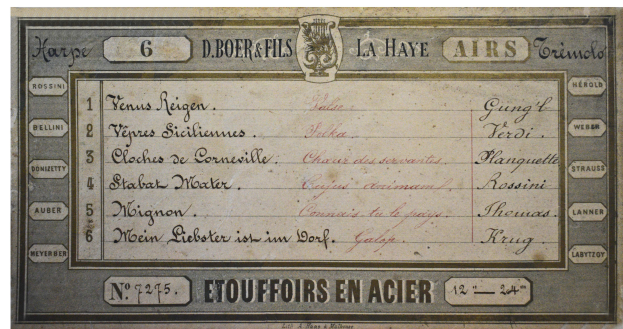 Harpe 6 D. BOER & FILS LA HAYE AIRS Trèmolo
ROSSINI
BELLINI
DONIZETTY
AUBER
MEYERBER
1 Venus Reigen. Valse. Gung'l
2 Vépres Siciliennes. Polka. Verdi.
3 Cloches de Corneville. Chœur des servantes. Planquette
4 Stabat Mater. Cujus animam. Rossini
5 Mignon. Connais tu le pays. Thomas.
6 Mein Liebster ist im Dorf. Galop. Krug.
HÉROLD
WEBER
STRAUSS
LANNER
LABYTZGY
No 7275. ETOUFFOIRS EN ACIER 12" — 24"